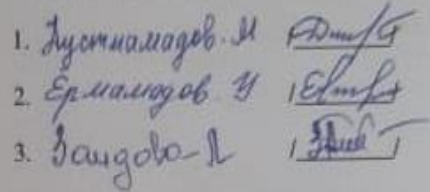 1. Дустмамадов. М
2. Ермамадов У
3. Заидова-Л